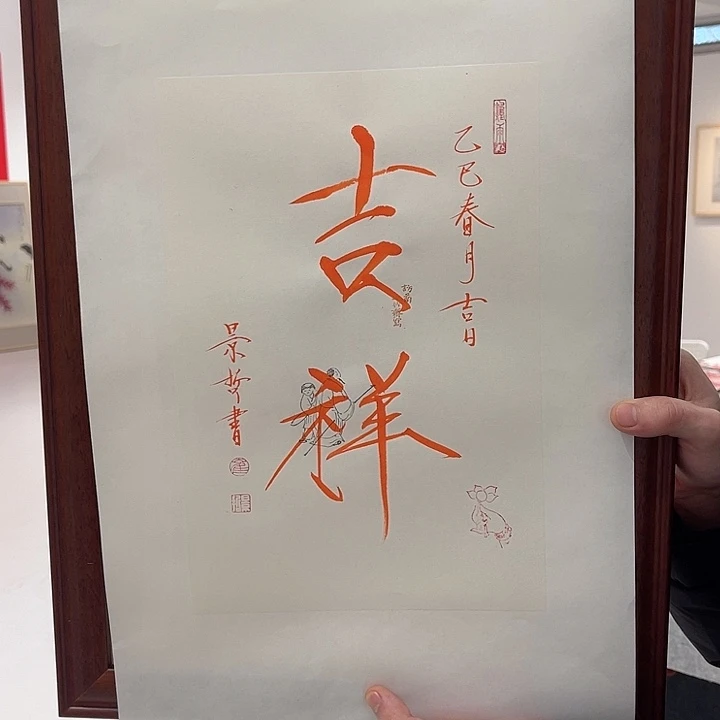 乙巳春月吉日
吉祥
景哲書